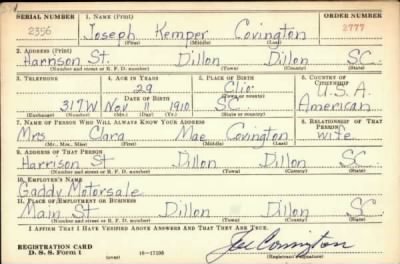 SERIAL NUMBER 1. NAME (Print) ORDER NUMBER
2356 Joseph Kemper Covington 2777
(First) (Middle) (Last)
2. ADDRESS (Print)
Harrison St. Dillon Dillon SC
(Number and street or R. F. D. number) (Town) (County) (State)
3. TELEPHONE 4. AGE IN YEARS 5. PLACE OF BIRTH 6. COUNTRY OF CITIZENSHIP
29 Clio U.S.A.
DATE OF BIRTH
317W Nov 11 1910 SC American
(Exchange) (Number) (Mo.) (Day) (Yr.) (State or country)
7. NAME OF PERSON WHO WILL ALWAYS KNOW YOUR ADDRESS 8. RELATIONSHIP OF THAT PERSON
Mrs Clara Mae Covington wife
(Mr., Mrs., Miss) (First) (Middle) (Last)
9. ADDRESS OF THAT PERSON
Harrison St Dillon Dillon SC
(Number and street or R. F. D. number) (Town) (County) (State)
10. EMPLOYER'S NAME
Gaddy Motorsale
11. PLACE OF EMPLOYMENT OR BUSINESS
Main St Dillon Dillon SC
(Number and street or R. F. D. number) (Town) (County) (State)
I AFFIRM THAT I HAVE VERIFIED ABOVE ANSWERS AND THAT THEY ARE TRUE.
REGISTRATION CARD Joe Covington
D. S. S. Form 1 16-17105 (Registrant's signature)